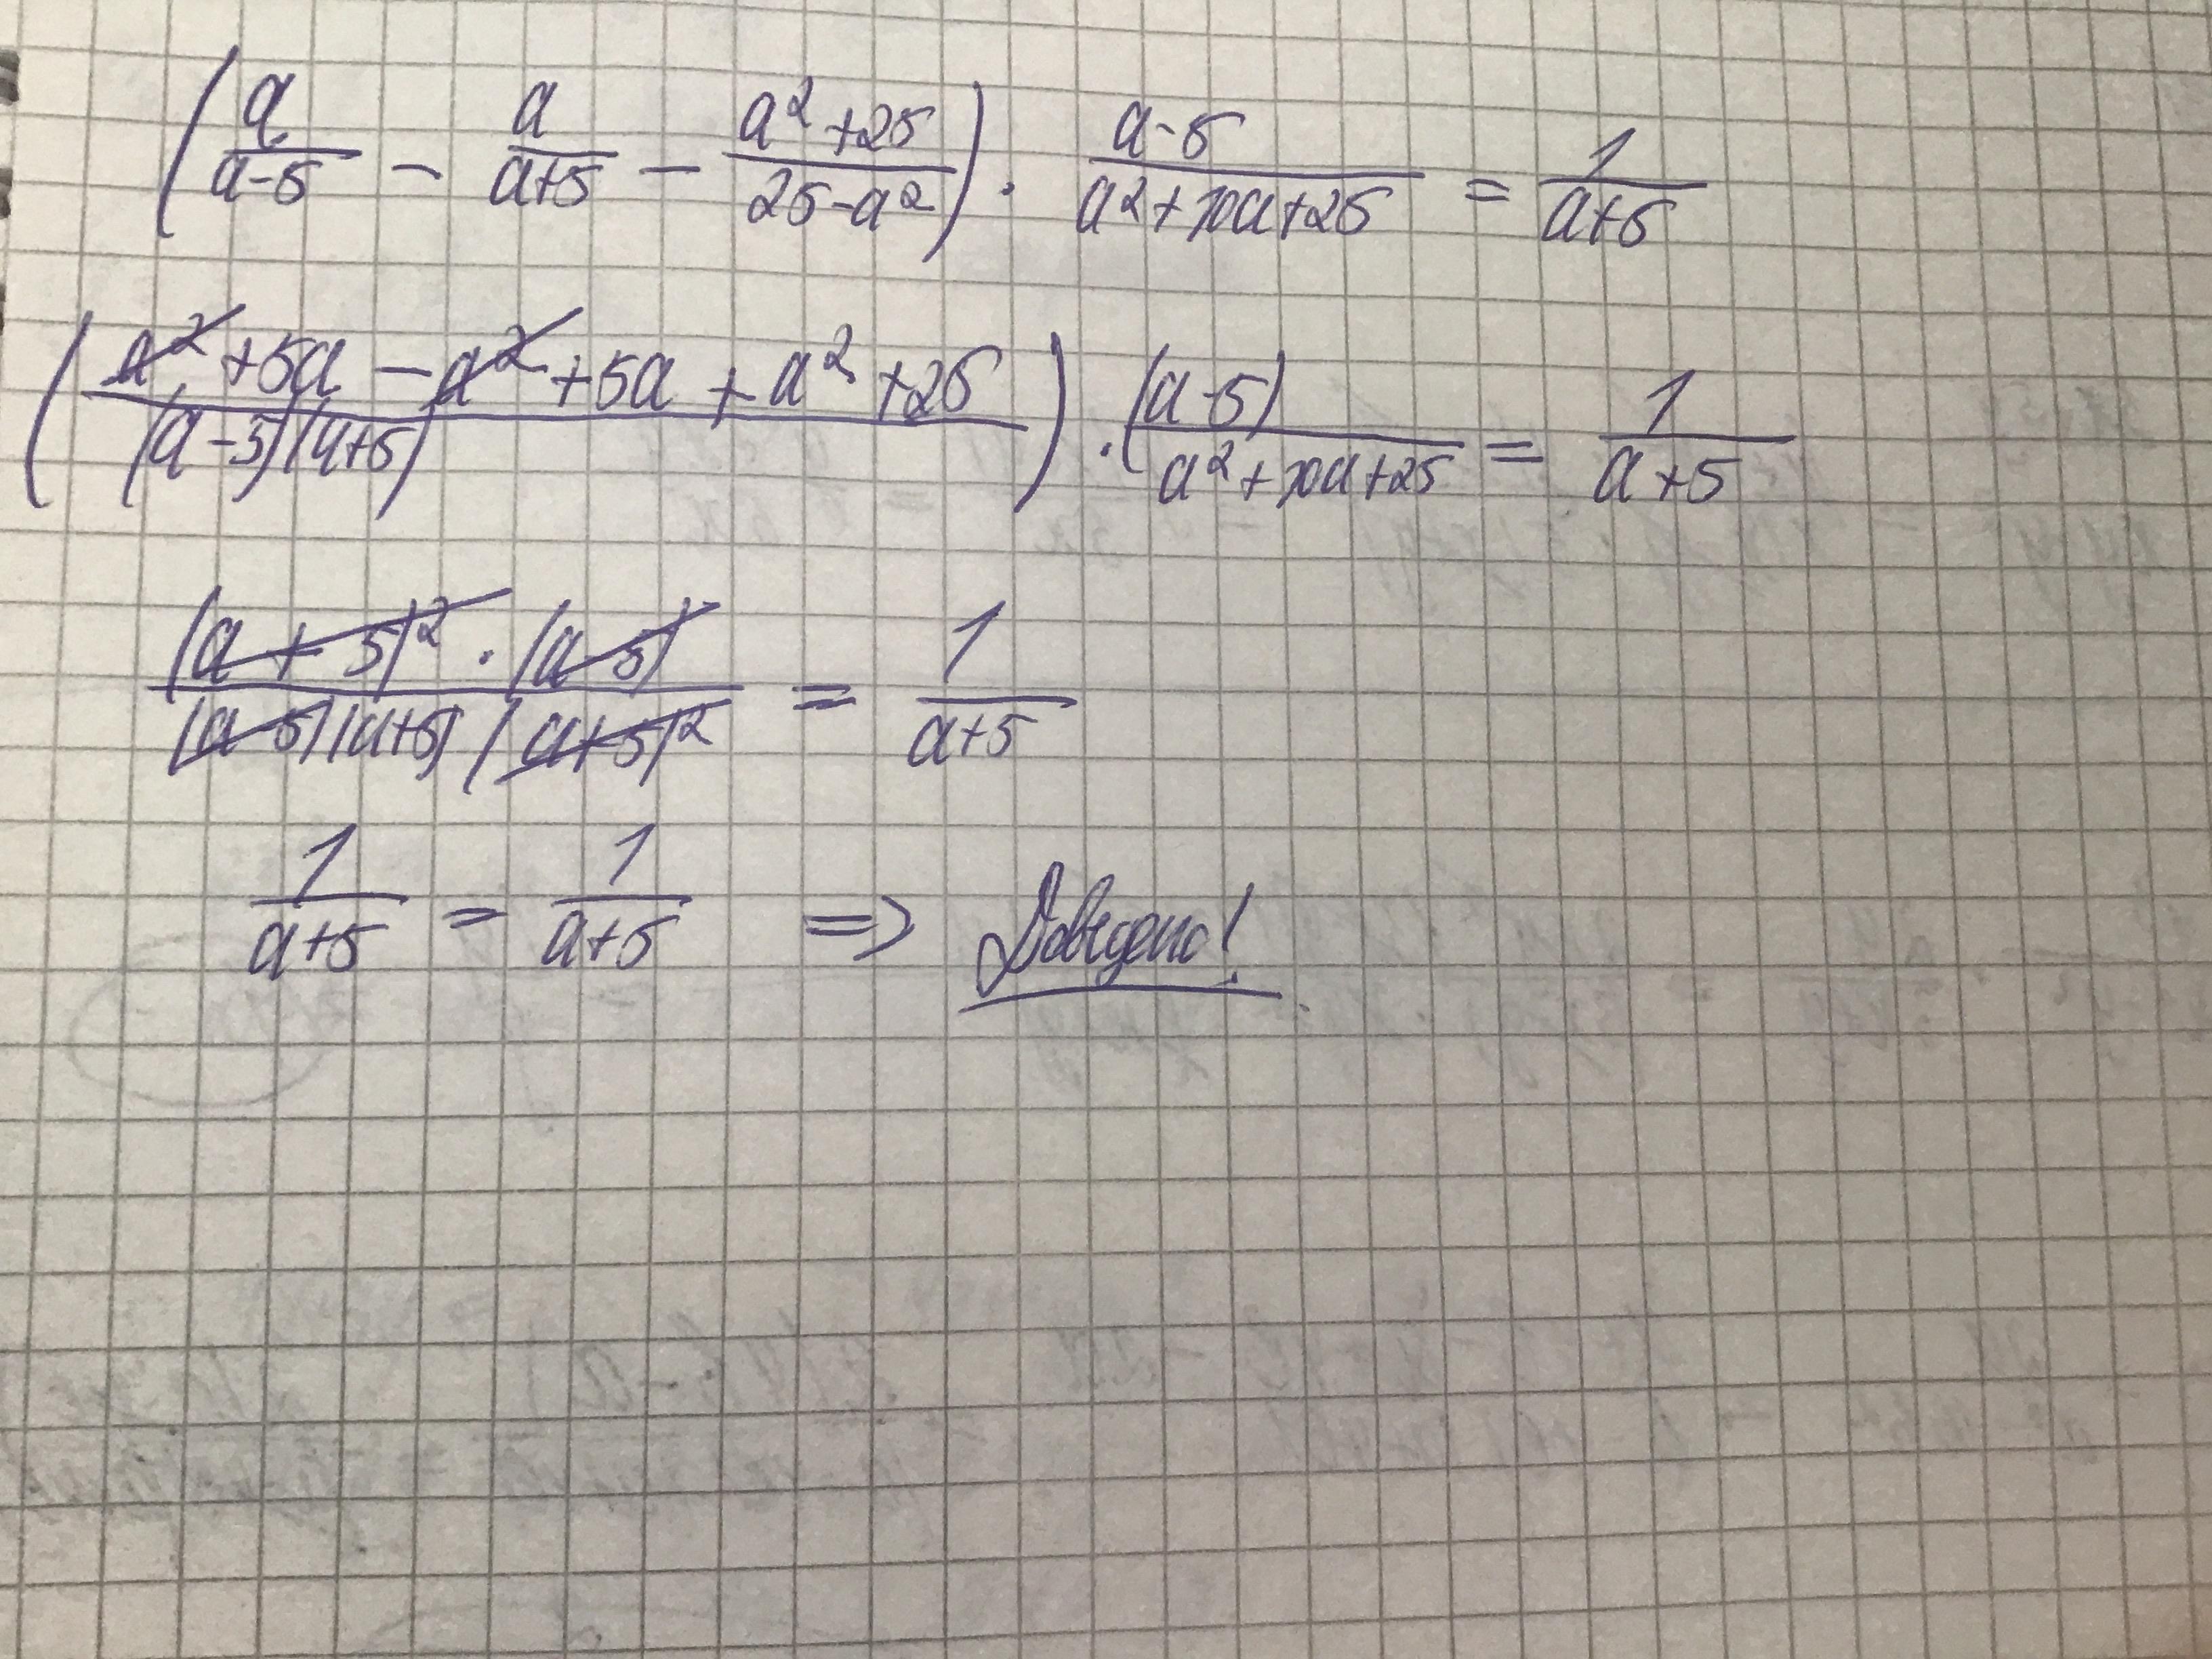 (a/(a-5) - a/(a+5) - (a²+25)/(25-a²)) · (a-5)/(a²+10a+25) = 1/(a+5)
((a²+5a-a²+5a+a²+25)/((a-5)(a+5))) · (a-5)/(a²+10a+25) = 1/(a+5)
((a+5)²·(a-5))/((a-5)(a+5)(a+5)²) = 1/(a+5)
1/(a+5) = 1/(a+5) => Доведено!